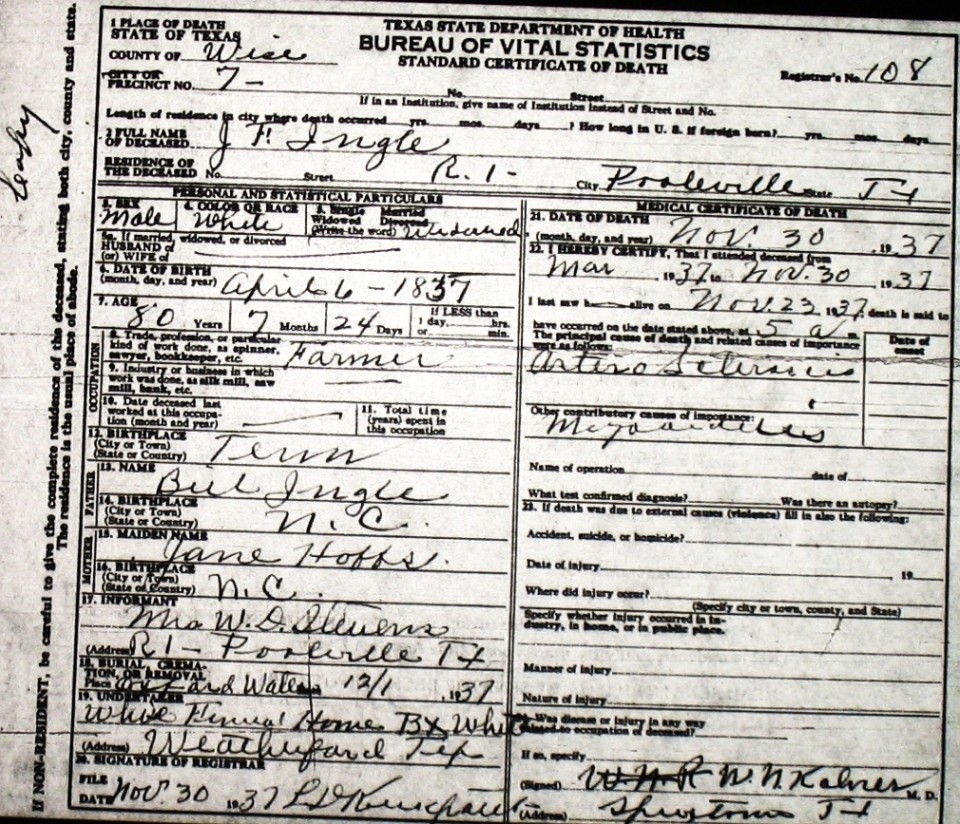 TEXAS STATE DEPARTMENT OF HEALTH
BUREAU OF VITAL STATISTICS
STANDARD CERTIFICATE OF DEATH
Registrar's No. 108
1 PLACE OF DEATH
STATE OF TEXAS
COUNTY OF Wise
CITY OR
PRECINCT NO. 7- No. Street
If in an Institution, give name of Institution instead of Street and No.
Length of residence in city where death occurred yrs. mos. days ? How long in U. S. if foreign born? yrs. mos. days
2 FULL NAME
OF DECEASED J. F. Ingle
RESIDENCE OF
THE DECEASED No. Street R. 1- City Poolville State TX
PERSONAL AND STATISTICAL PARTICULARS
3. SEX Male
4. COLOR OR RACE White
5. Single Married
Widowed Divorced
(Write the word) Widowed
5a. If married, widowed, or divorced
HUSBAND of
(or) WIFE of
6. DATE OF BIRTH
(month, day, and year) April 6 - 1857
7. AGE 80 Years 7 Months 24 Days
If LESS than
1 day, hrs.
or min.
OCCUPATION
8. Trade, profession, or particular
kind of work done, as spinner,
sawyer, bookkeeper, etc. Farmer
9. Industry or business in which
work was done, as silk mill, saw
mill, bank, etc.
10. Date deceased last
worked at this occupa-
tion (month and year)
11. Total time
(years) spent in
this occupation
12. BIRTHPLACE
(City or Town)
(State or Country) Tenn
FATHER
13. NAME
Bill Ingle
14. BIRTHPLACE
(City or Town)
(State or Country) N. C.
MOTHER
15. MAIDEN NAME
Jane Hobbs.
16. BIRTHPLACE
(City or Town)
(State or Country) N. C.
17. INFORMANT
Mrs W. D. Stevens
(Address) R1- Poolville TX
18. BURIAL, CREMA-
TION, OR REMOVAL
Place 12/1 , 1937
19. UNDERTAKER
White Funeral Home By White
(Address) Weatherford Tex
20. SIGNATURE OF REGISTRAR
FILE
DATE Nov. 30 1937
MEDICAL CERTIFICATE OF DEATH
21. DATE OF DEATH
(month, day, and year) Nov. 30 , 1937
22. I HEREBY CERTIFY, That I attended deceased from
Mar , 1937 to Nov. 30 , 1937
I last saw h alive on Nov. 23 , 1937, death is said to
have occurred on the date stated above, at 5 a
The principal cause of death and related causes of importance
were as follows:
Date of
onset
Arterio Sclerosis
Other contributory causes of importance:
Myocarditis
Name of operation date of
What test confirmed diagnosis? Was there an autopsy?
23. If death was due to external causes (violence) fill in also the following:
Accident, suicide, or homicide?
Date of injury 19
Where did injury occur?
(Specify city or town, county, and State)
Specify whether injury occurred in in-
dustry, in home, or in public place.
Manner of injury
Nature of injury
24. Was disease or injury in any way
related to occupation of deceased?
If so, specify
(Signed) W. N. M. D.
(Address) Springtown TX
If NON-RESIDENT, be careful to give the complete residence of the deceased, stating both city, county and state.
The residence is the usual place of abode.